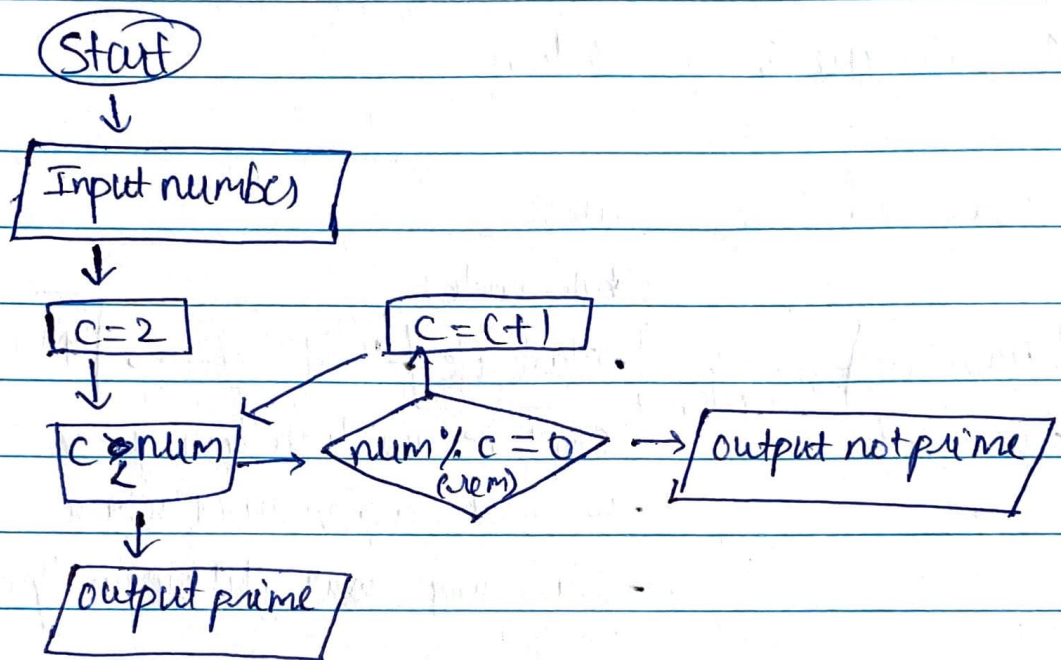 Start
Input number
C=2
C=C+1
C num
num % C = 0
(rem)
output not prime
output prime